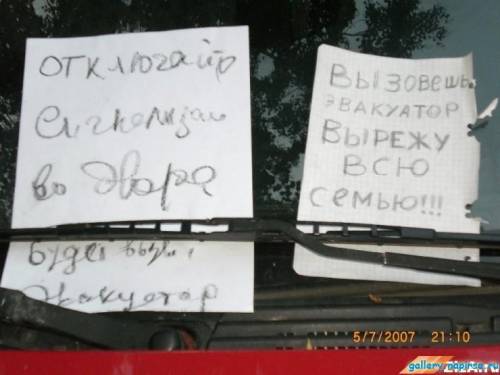 ОТКЛЮЧАЙТЕ
Сигнализац
во дворе
Будет вызы
Эвакуатор
ВЫЗОВЕШЬ
ЭВАКУАТОР
ВЫРЕЖУ
ВСЮ
СЕМЬЮ!!!
5/7/2007 21:10
gallery.mapinse.ru